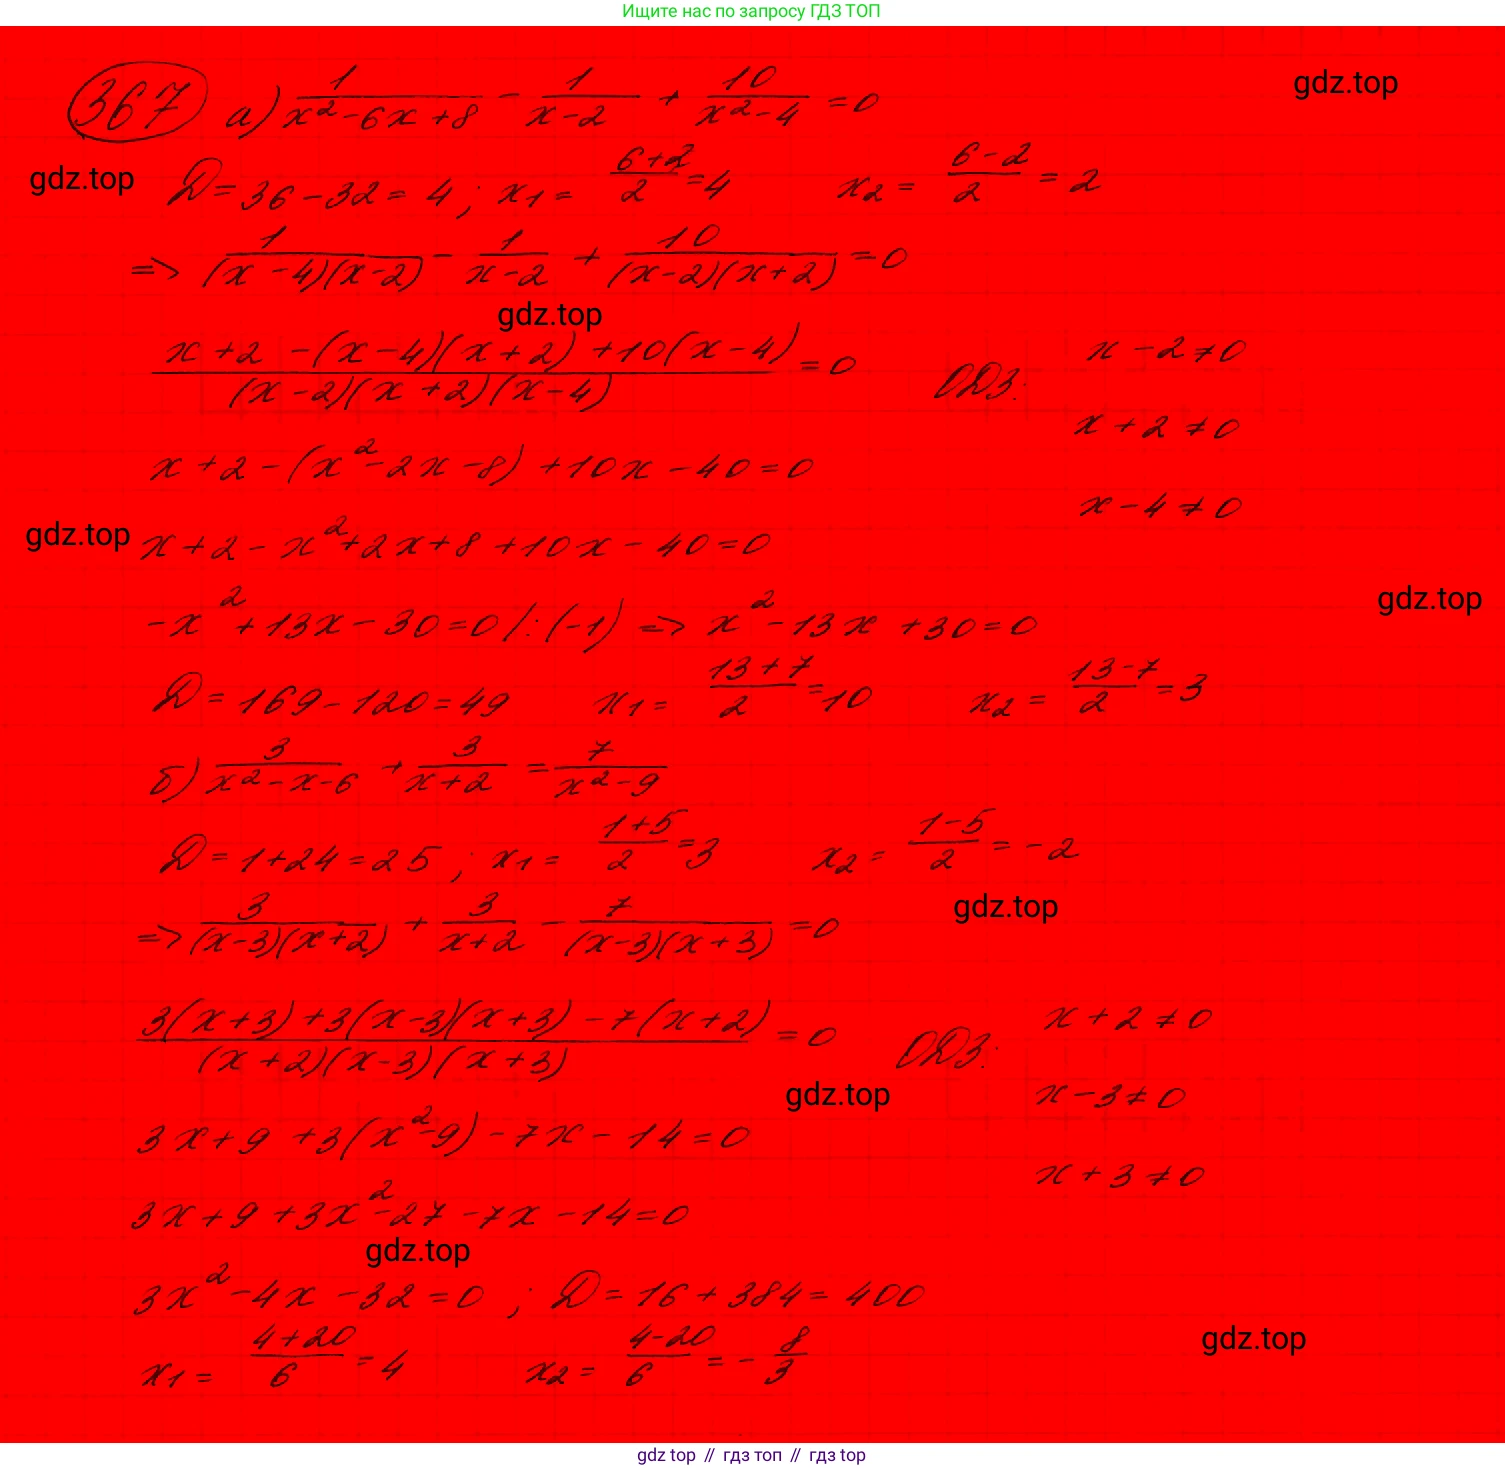 Ищите нас по запросу ГДЗ ТОП
367 а) 1/(x²-6x+8) - 1/(x-2) + 10/(x²-4) = 0
gdz.top
gdz.top
D = 36-32 = 4; x1 = (6+2)/2 = 4 x2 = (6-2)/2 = 2
=> 1/((x-4)(x-2)) - 1/(x-2) + 10/((x-2)(x+2)) = 0
gdz.top
(x+2-(x-4)(x+2)+10(x-4))/((x-2)(x+2)(x-4)) = 0 ОДЗ: x-2≠0
x+2≠0
x+2-(x²-2x-8)+10x-40=0
x-4≠0
gdz.top
x+2-x²+2x+8+10x-40=0
gdz.top
-x²+13x-30=0 /:(-1) => x²-13x+30=0
D = 169-120 = 49 x1 = (13+7)/2 = 10 x2 = (13-7)/2 = 3
б) 3/(x²-x-6) + 3/(x+2) = 7/(x²-9)
D = 1+24 = 25; x1 = (1+5)/2 = 3 x2 = (1-5)/2 = -2
gdz.top
=> 3/((x-3)(x+2)) + 3/(x+2) - 7/((x-3)(x+3)) = 0
(3(x+3)+3(x-3)(x+3)-7(x+2))/((x+2)(x-3)(x+3)) = 0 ОДЗ: x+2≠0
gdz.top
x-3≠0
3x+9+3(x²-9)-7x-14=0
x+3≠0
3x+9+3x²-27-7x-14=0
gdz.top
3x²-4x-32=0; D = 16+384 = 400
gdz.top
x1 = (4+20)/6 = 4 x2 = (4-20)/6 = -8/3
gdz top // гдз топ // гдз top